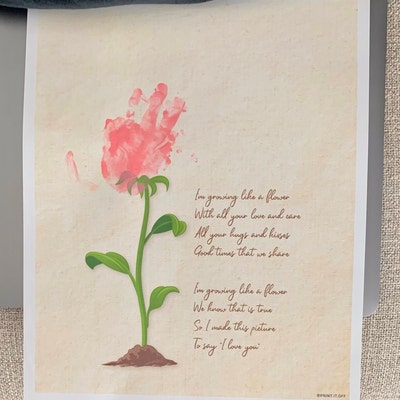 Im growing like a flower
With all your love and care
All your hugs and kisses
Good times that we share
Im growing like a flower
We know that is true
So I made this picture
To say "I love you"
@PRINT.IT.OFF